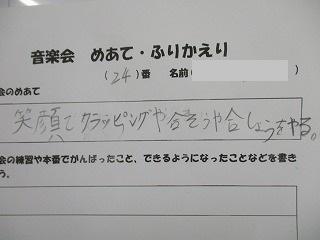 音楽会 めあて・ふりかえり
(24)番 名前
会のめあて
笑顔でクラッピングや合そうや合しょうをやる。
会の練習や本番でがんばったこと、できるようになったことなどを書き
う。